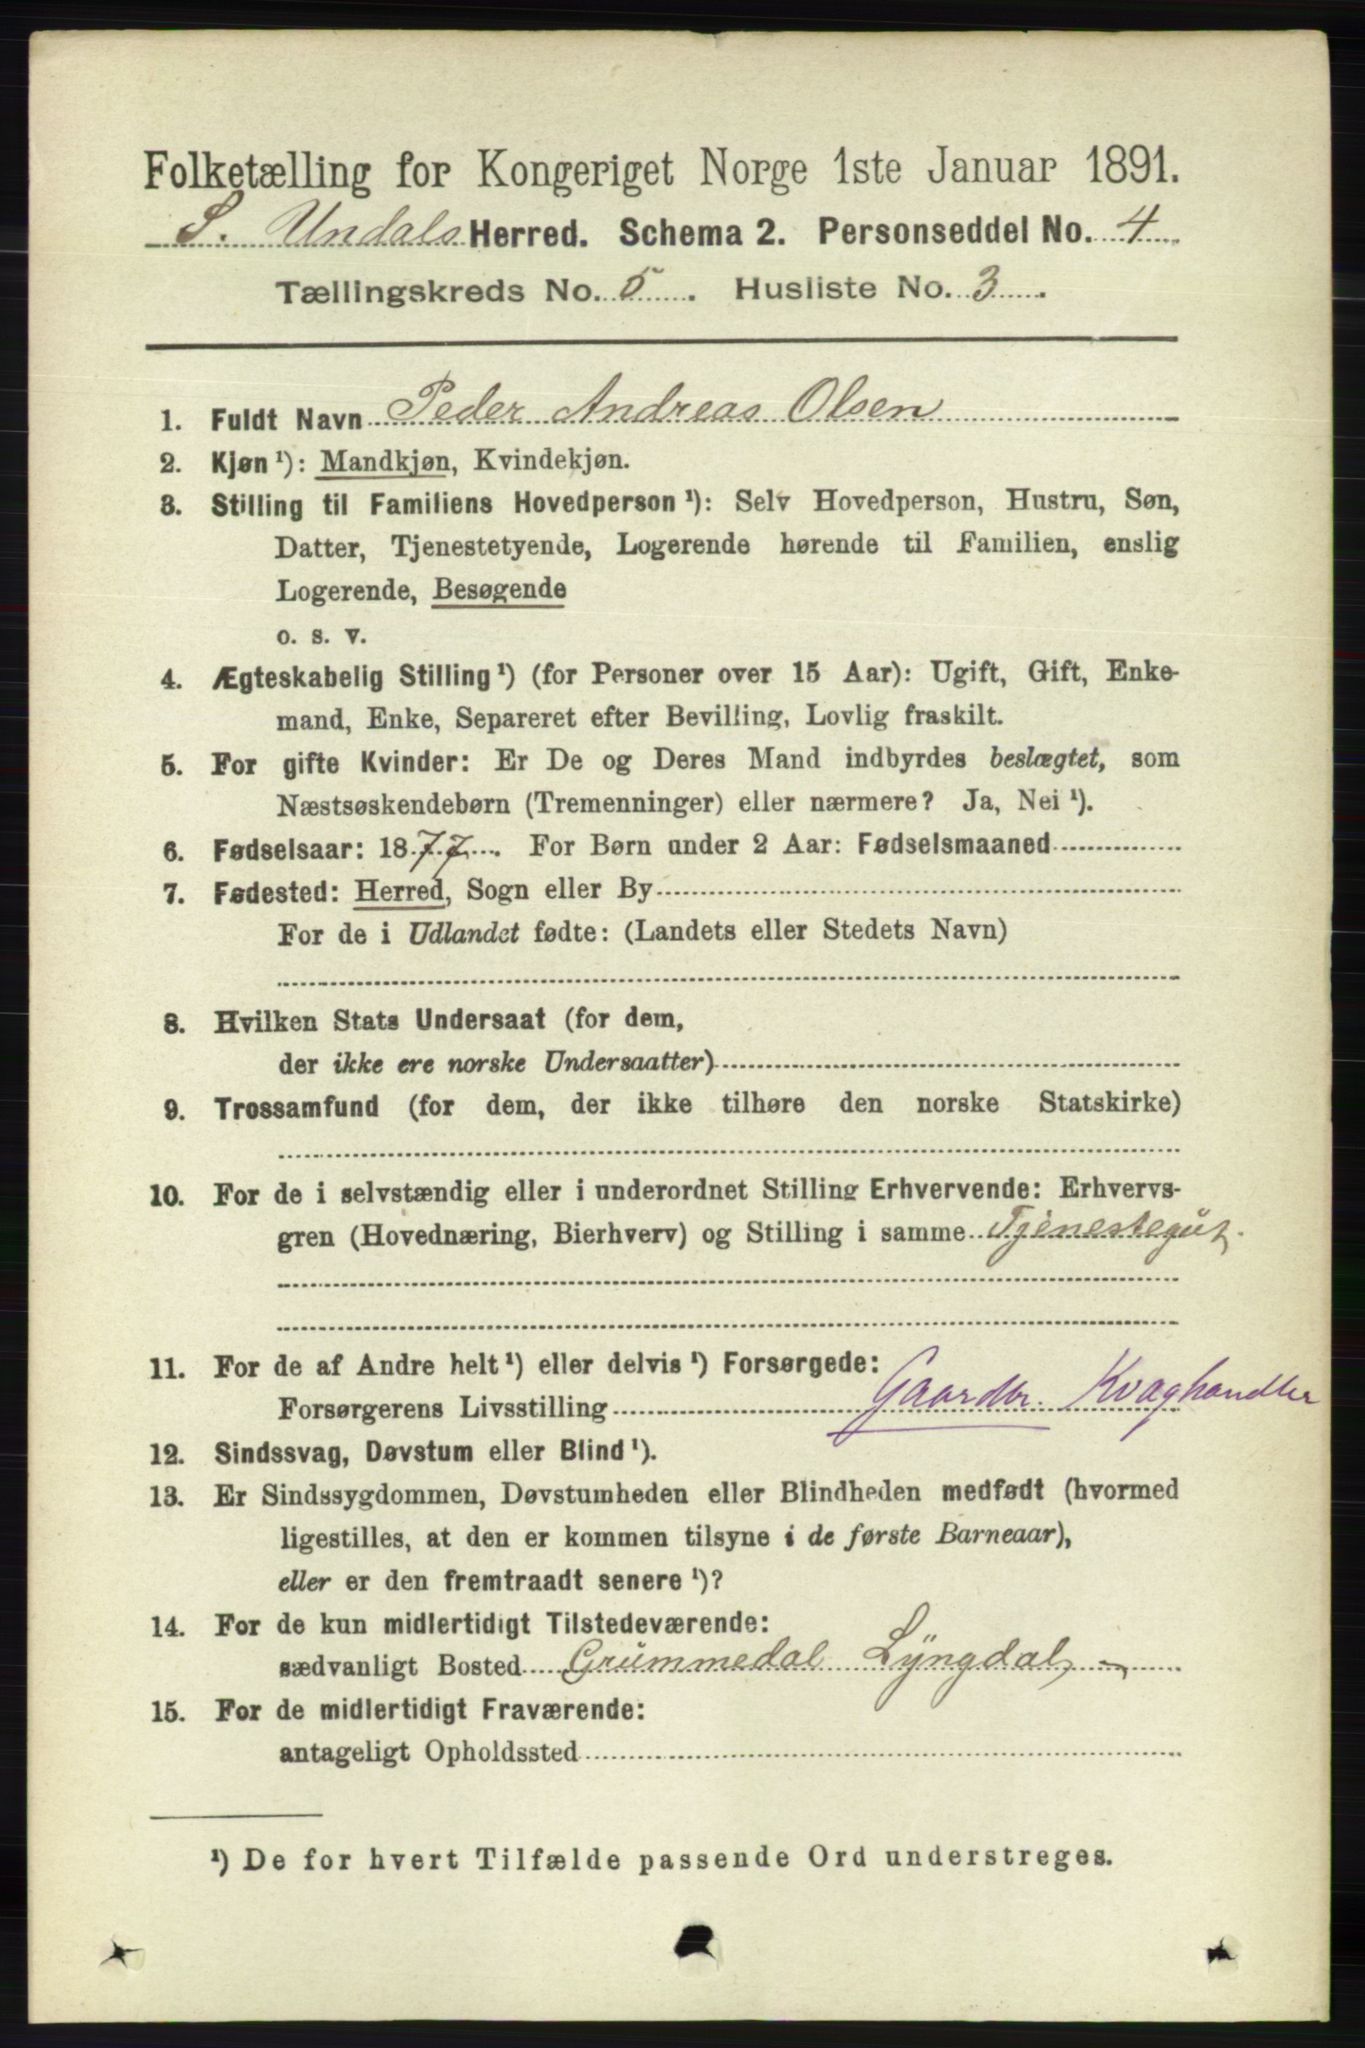 Folketælling for Kongeriget Norge 1ste Januar 1891.
S. Undals Herred. Schema 2. Personseddel No. 4
Tællingskreds No. 5. Husliste No. 3.
1. Fuldt Navn Peder Andreas Olsen
2. Kjøn¹): Mandkjøn, Kvindekjøn.
3. Stilling til Familiens Hovedperson¹): Selv Hovedperson, Hustru, Søn,
Datter, Tjenestetyende, Logerende hørende til Familien, enslig
Logerende, Besøgende
o. s. v.
4. Ægteskabelig Stilling¹) (for Personer over 15 Aar): Ugift, Gift, Enke-
mand, Enke, Separeret efter Bevilling, Lovlig fraskilt.
5. For gifte Kvinder: Er De og Deres Mand indbyrdes beslægtet, som
Næstsøskendebørn (Tremenninger) eller nærmere? Ja, Nei¹).
6. Fødselsaar: 1877. For Børn under 2 Aar: Fødselsmaaned
7. Fødested: Herred, Sogn eller By
For de i Udlandet fødte: (Landets eller Stedets Navn)
8. Hvilken Stats Undersaat (for dem,
der ikke ere norske Undersaatter)
9. Trossamfund (for dem, der ikke tilhøre den norske Statskirke)
10. For de i selvstændig eller i underordnet Stilling Erhvervende: Erhvervs-
gren (Hovednæring, Bierhverv) og Stilling i samme Tjenestegut.
11. For de af Andre helt¹) eller delvis¹) Forsørgede:
Forsørgerens Livsstilling Gaardbr. Kvaghandler
12. Sindssvag, Døvstum eller Blind¹).
13. Er Sindssygdommen, Døvstumheden eller Blindheden medfødt (hvormed
ligestilles, at den er kommen tilsyne i de første Barneaar),
eller er den fremtraadt senere¹)?
14. For de kun midlertidigt Tilstedeværende:
sædvanligt Bosted Grummedal Lyngdal
15. For de midlertidigt Fraværende:
antageligt Opholdssted
¹) De for hvert Tilfælde passende Ord understreges.